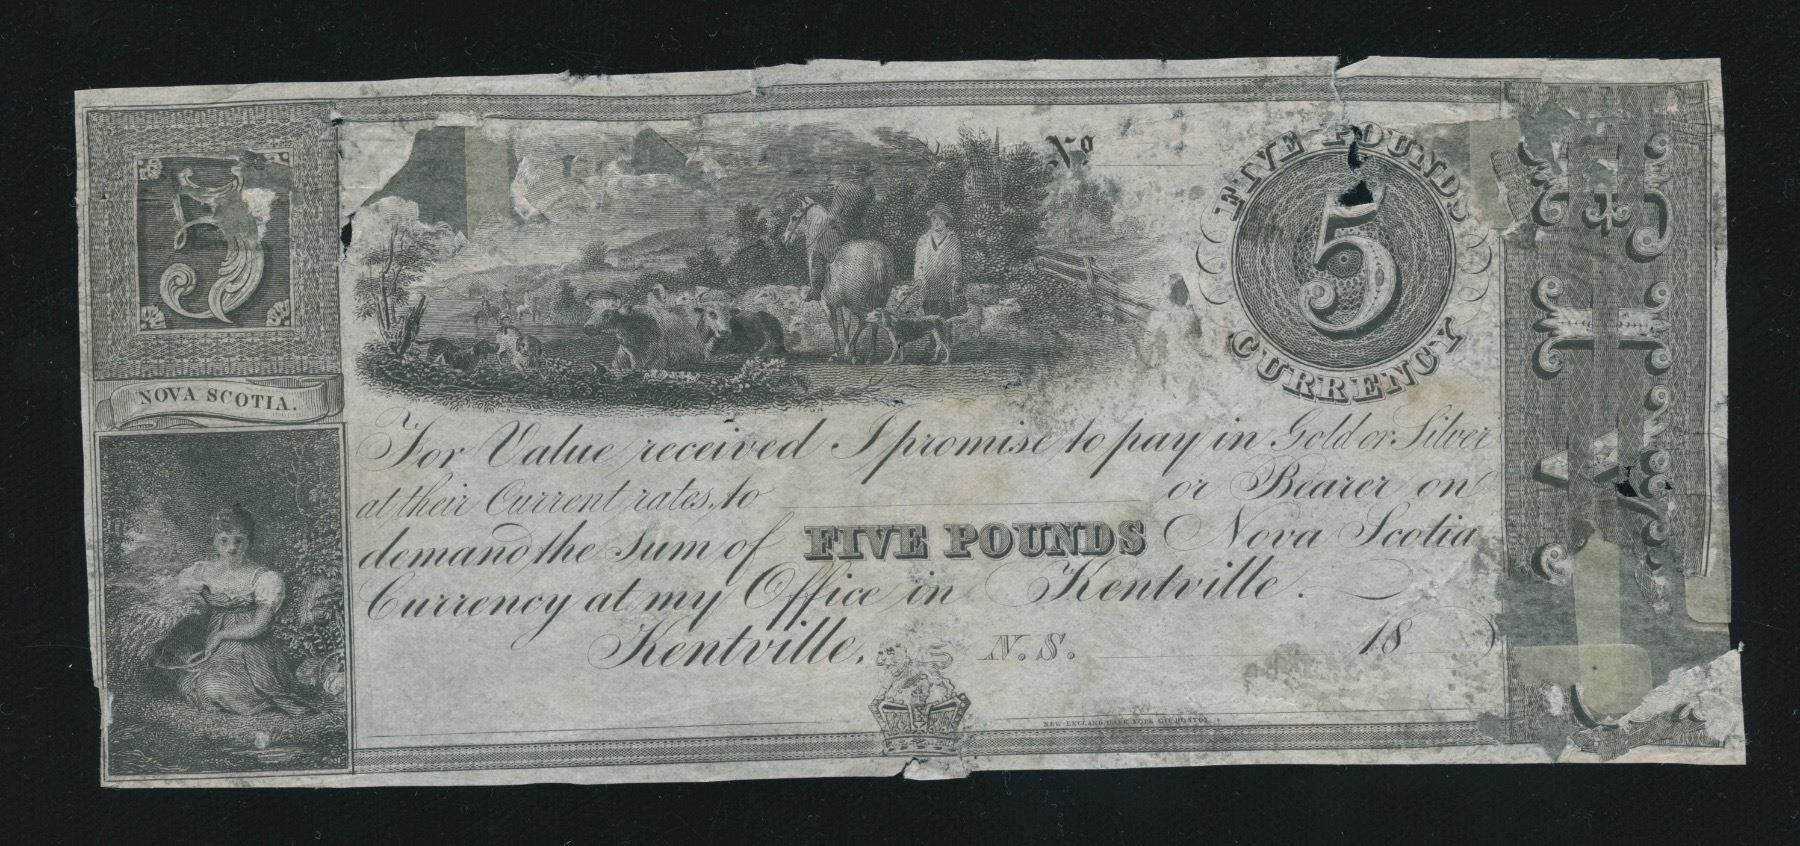 5
NOVA SCOTIA.
No
FIVE POUNDS
5
CURRENCY
For Value received I promise to pay in Gold or Silver
at their Current rates, to or Bearer on
demand the Sum of FIVE POUNDS Nova Scotia
Currency at my Office in Kentville.
Kentville, N. S. 18
NEW ENGLAND BANK NOTE CO. BOSTON.